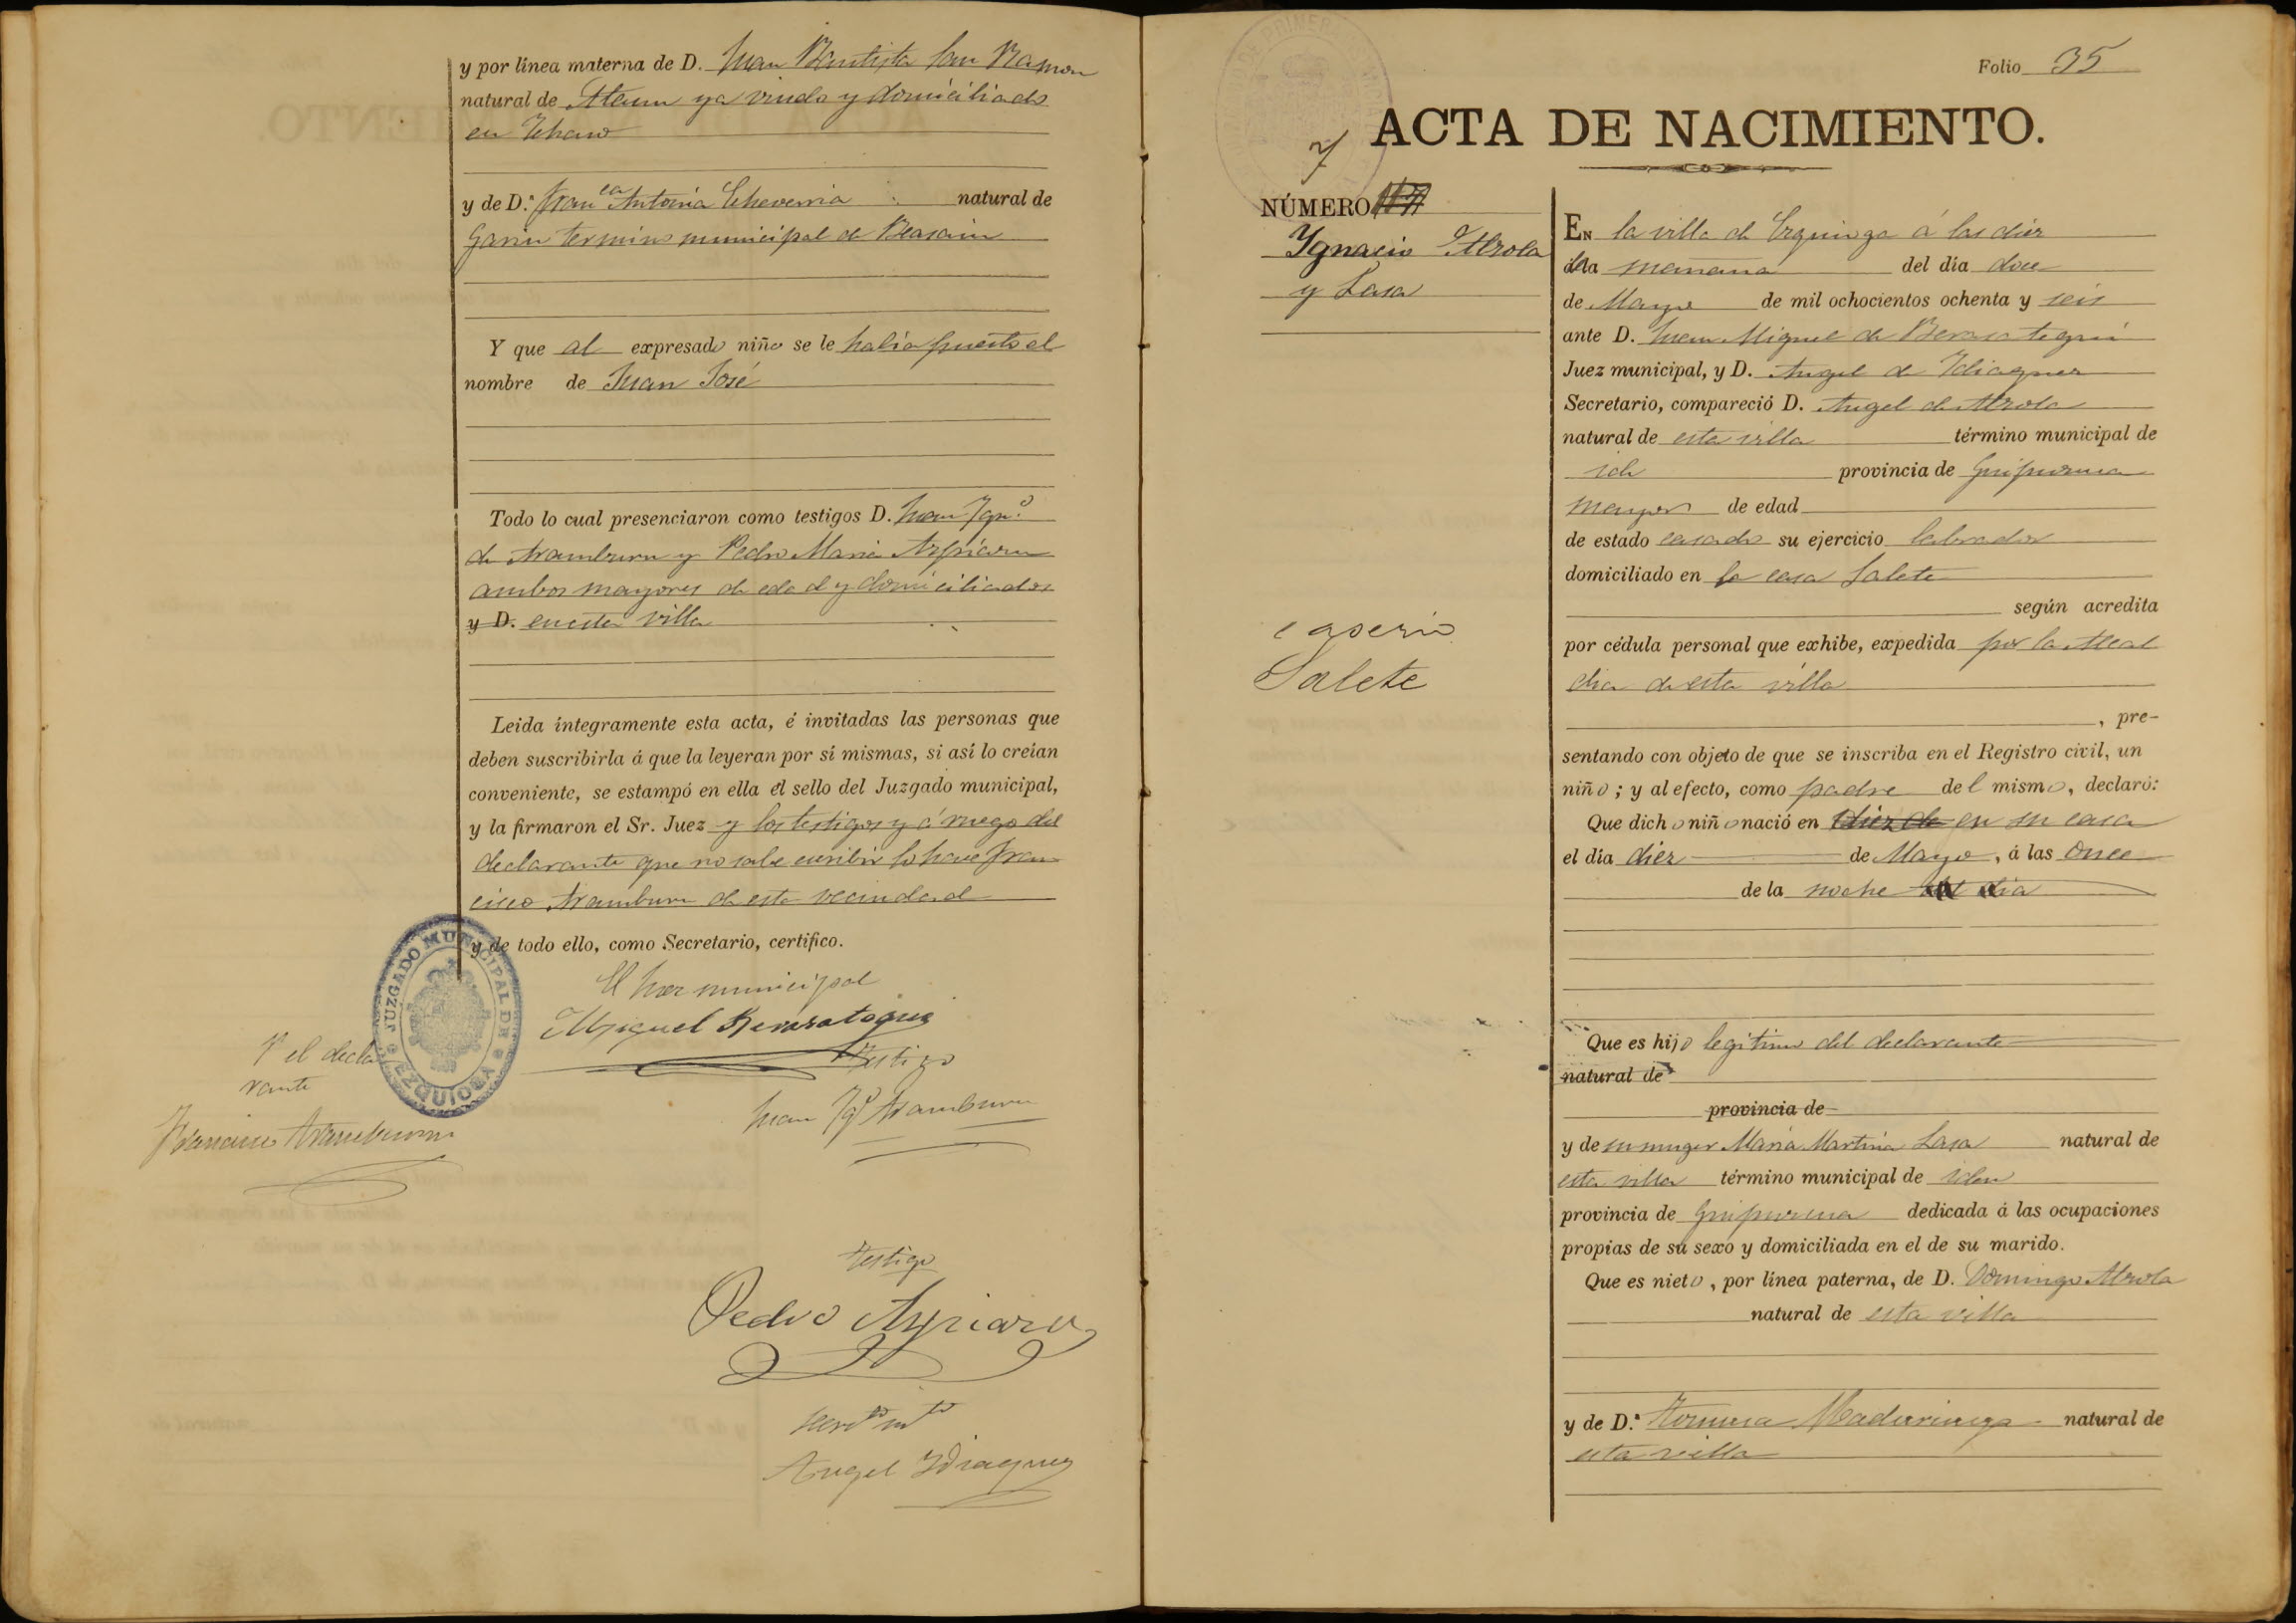 y por línea materna de D. Juan Bautista San Ramon
natural de Ataun ya viudo y domiciliado
en Ichaso
y de D.ª Fran.ca Antonia Echeverria natural de
Garin termino municipal de Beasain
Y que al expresado niño se le habia puesto el
nombre de Juan José
Todo lo cual presenciaron como testigos D. Juan Ign.º
de Aramburu y Pedro Maria Azpiazu
ambos mayores de edad y domiciliados
y D. en esta villa
Leida íntegramente esta acta, é invitadas las personas que
deben suscribirla á que la leyeran por sí mismas, si así lo creían
conveniente, se estampó en ella el sello del Juzgado municipal,
y la firmaron el Sr. Juez y los testigos y á ruego del
declarante que no sabe escribir lo hace Fran
cisco Aramburu de esta vecindad
y de todo ello, como Secretario, certifico.
JUZGADO MUNICIPAL DE EZQUIOGA
El Juez municipal
Miguel Berasategui
P el decla
rante
Francisco Aramburu
Testigo
Juan Ig.º Aramburu
testigo
Pedro Azpiazu
Angel Idiaquez
Folio 35
ACTA DE NACIMIENTO.
7
NÚMERO
Ygnacio Alzola
y Lasa
caserio
Salete
EN la villa de Ezquioga á las diez
de la mañana del día doce
de Mayo de mil ochocientos ochenta y seis
ante D. Juan Miguel de Berasategui
Juez municipal, y D. Angel de Idiaquez
Secretario, compareció D. Angel de Alzola
natural de esta villa término municipal de
id provincia de Guipuzcoa
mayor de edad
de estado casado su ejercicio labrador
domiciliado en la casa Salete
según acredita
por cédula personal que exhibe, expedida por la Alcal
dia de esta villa
, pre-
sentando con objeto de que se inscriba en el Registro civil, un
niño; y al efecto, como padre del mismo, declaró:
Que dicho niño nació en diez de en su casa
el día diez de Mayo, á las once
de la noche del dia
Que es hijo legitimo del declarante
natural de
provincia de
y de su muger Maria Martina Lasa natural de
esta villa término municipal de idem
provincia de Guipuzcoa dedicada á las ocupaciones
propias de su sexo y domiciliada en el de su marido.
Que es nieto, por línea paterna, de D. Domingo Alzola
natural de esta villa
y de D.ª natural de
esta villa